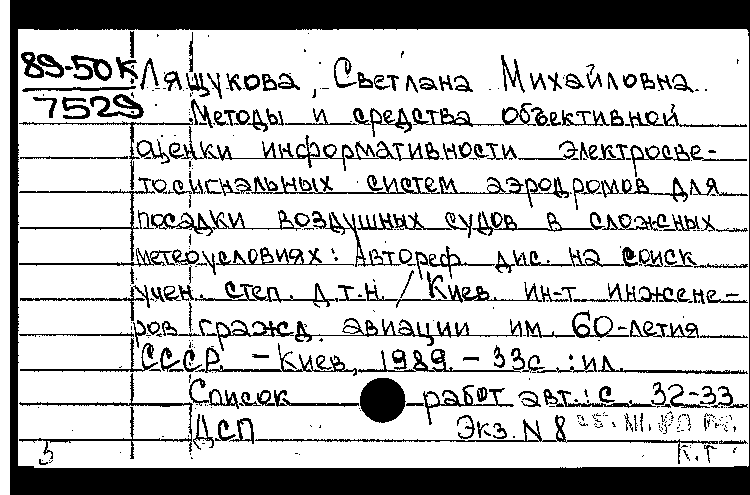 89-50К
7529
Лящукова, Светлана Михайловна
Методы и средства объективной
оценки информативности электросве-
тосигнальных систем аэродромов для
посадки воздушных судов в сложных
метеоусловиях: Автореф. дис. на соиск
учен. степ. д.т.н. / Киев. ин-т инжене-
ров гражд. авиации им. 60-летия
СССР. - Киев, 1989. - 33с. : ил.
Список работ авт.: с. 32-33
ДСП Экз. N 8
К.Т